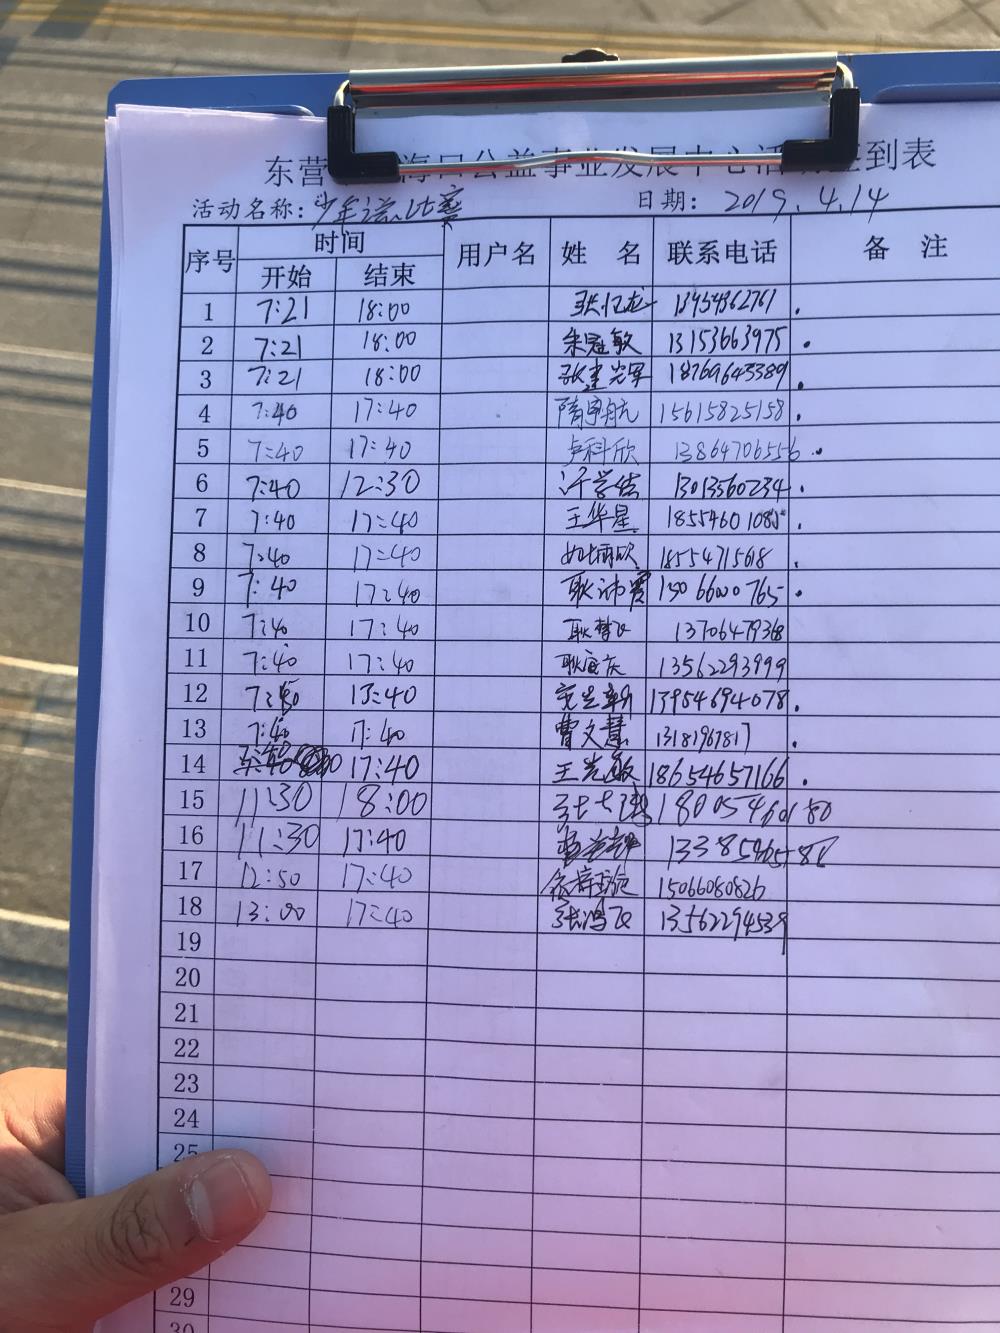 东营 海口公益事业发展中心活 签到表
活动名称: 少年 比赛 日期: 2019.4.14
序号 时间 用户名 姓 名 联系电话 备 注
开始 结束
1 7:21 18:00 张忆龙 13954362761 .
2 7:21 18:00 朱冠敏 13153663975 .
3 7:21 18:00 张建光军 18769643389 .
4 7:40 17:40 隋宇航 15615825158 .
5 7:40 17:40 卢科欣 13864706556 .
6 7:40 12:30 13013560234 .
7 7:40 17:40 王华星 18554601085 .
8 7:40 17:40 18554715618 .
9 7:40 17:40 耿沛霞 15066000765 .
10 7:40 17:40 耿梦 13706479368
11 7:40 17:40 13562293999
12 7:40 13954694078 .
13 7:40 17:40 曹文慧 13181967817 .
14 17:40 王光敏 18654657166 .
15 11:30 18:00 18005460180
16 11:30 17:40
17 12:50 17:40 15066080826
18 13:00 17:40 张鸿飞 13562294539
19
20
21
22
23
24
25
29
30